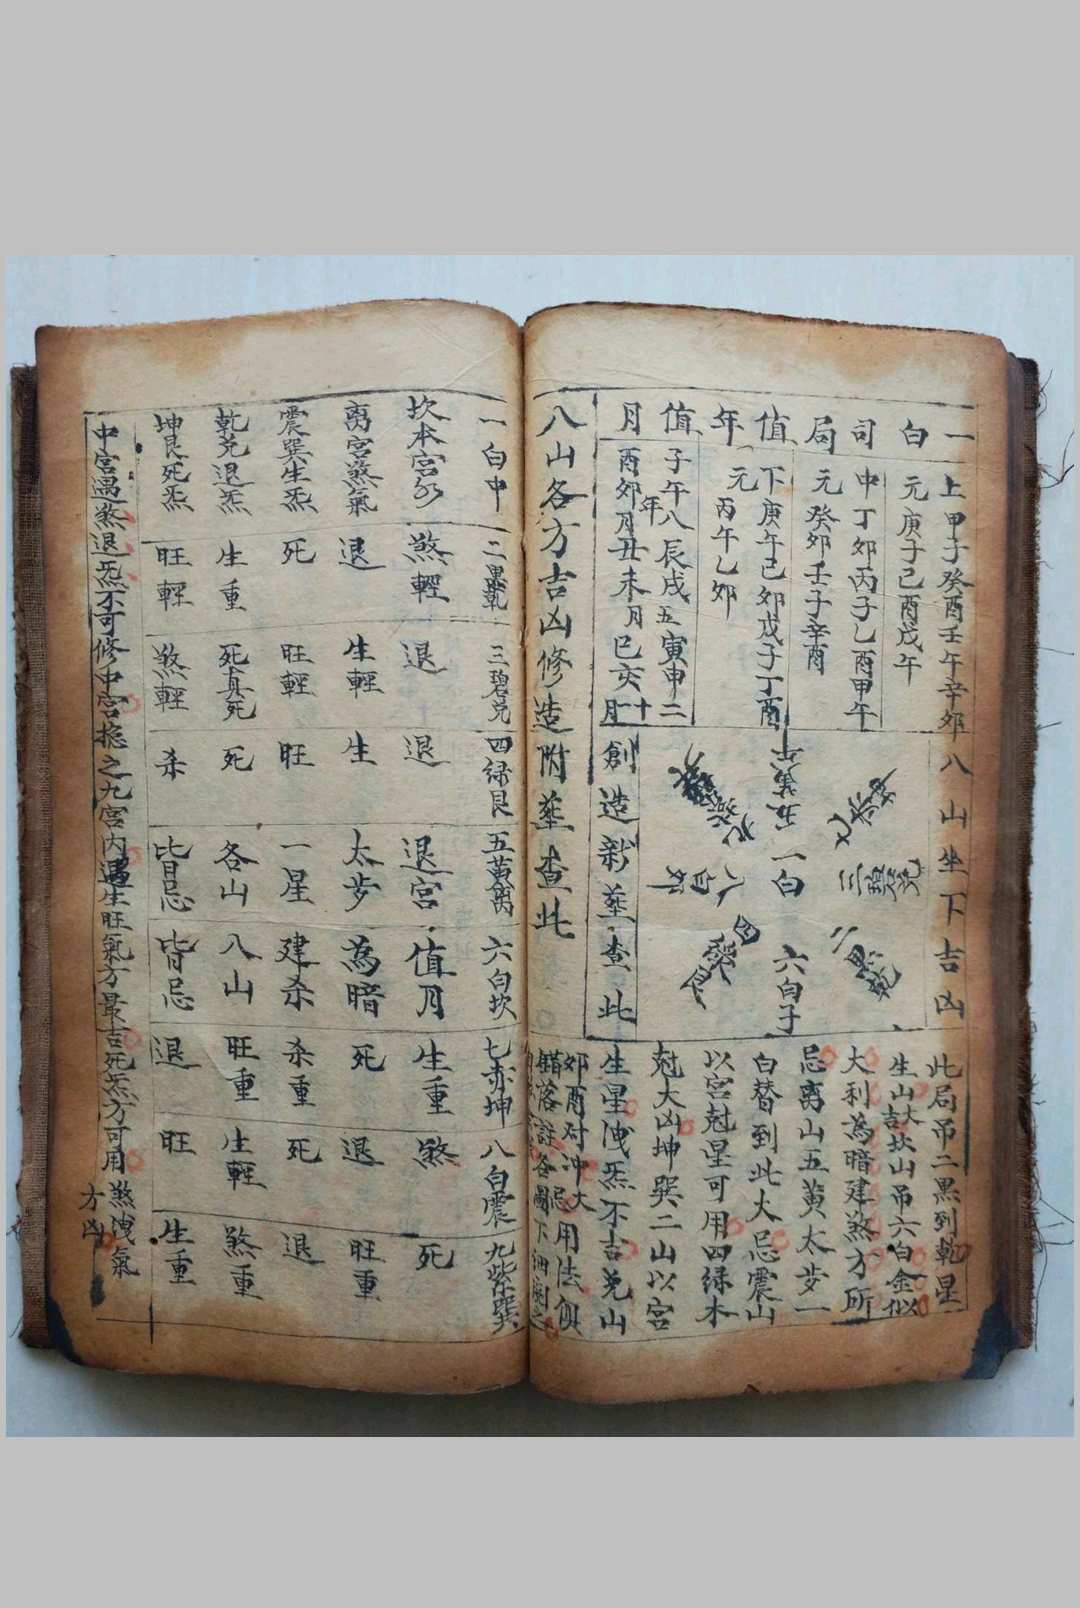 一白司局值年值月
上甲子癸酉壬午辛卯
元庚子己酉戊午
中丁卯丙子乙酉甲午
元癸卯壬子辛酉
下庚午己卯戊子丁酉
元丙午乙卯
子午八辰戌五寅申二
年
酉卯月丑未月巳亥十一月
八山坐下吉凶
五黃
一白
六白子
三碧兌
二黑乾
四綠艮
八白
創造新塟查此
此局吊二黑列乾星
生山大吉坎山吊六白金似
大利為暗建煞方所
忌离山五黄太步一
白替到此大忌震山
以宮尅星可用四绿木
尅大凶坤巽二山以宮
生星洩炁不吉兑山
卯酉对冲大忌用法俱
錯落註各圖下細
八山各方吉凶修造附塟查此
一白中 二黑乾 三碧兑 四绿艮 五黄离 六白坎 七赤坤 八白震 九紫巽
坎本宮水 煞輕 退 退 退宮 值月 生重 煞 死
离宮煞氣 退 生輕 生 太步 為暗 死 退 旺重
震巽生炁 死 旺輕 旺 一星 建杀 杀重 死 退
乾兑退炁 生重 死真死 死 各山 八山 旺重 生輕 煞重
坤艮死炁 旺輕 煞輕 杀 皆忌 皆忌 退 旺 生重
中宮遇煞退炁不可修中宮揔之九宮内遇生旺氣方最吉死炁方可用煞洩氣方凶